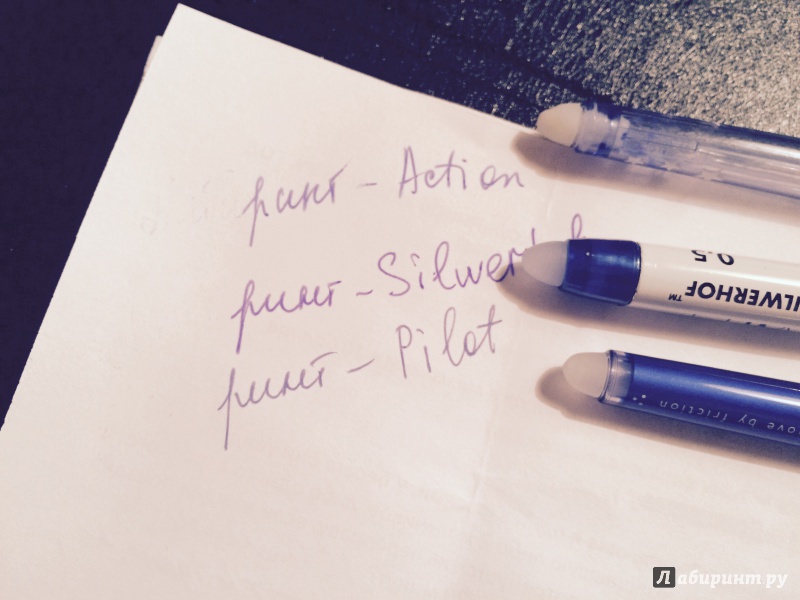 ринт – Action
ринт – Silwer
ринт – Pilot
0.5
ILWERHOF™
ove by friction
Лабиринт.ру